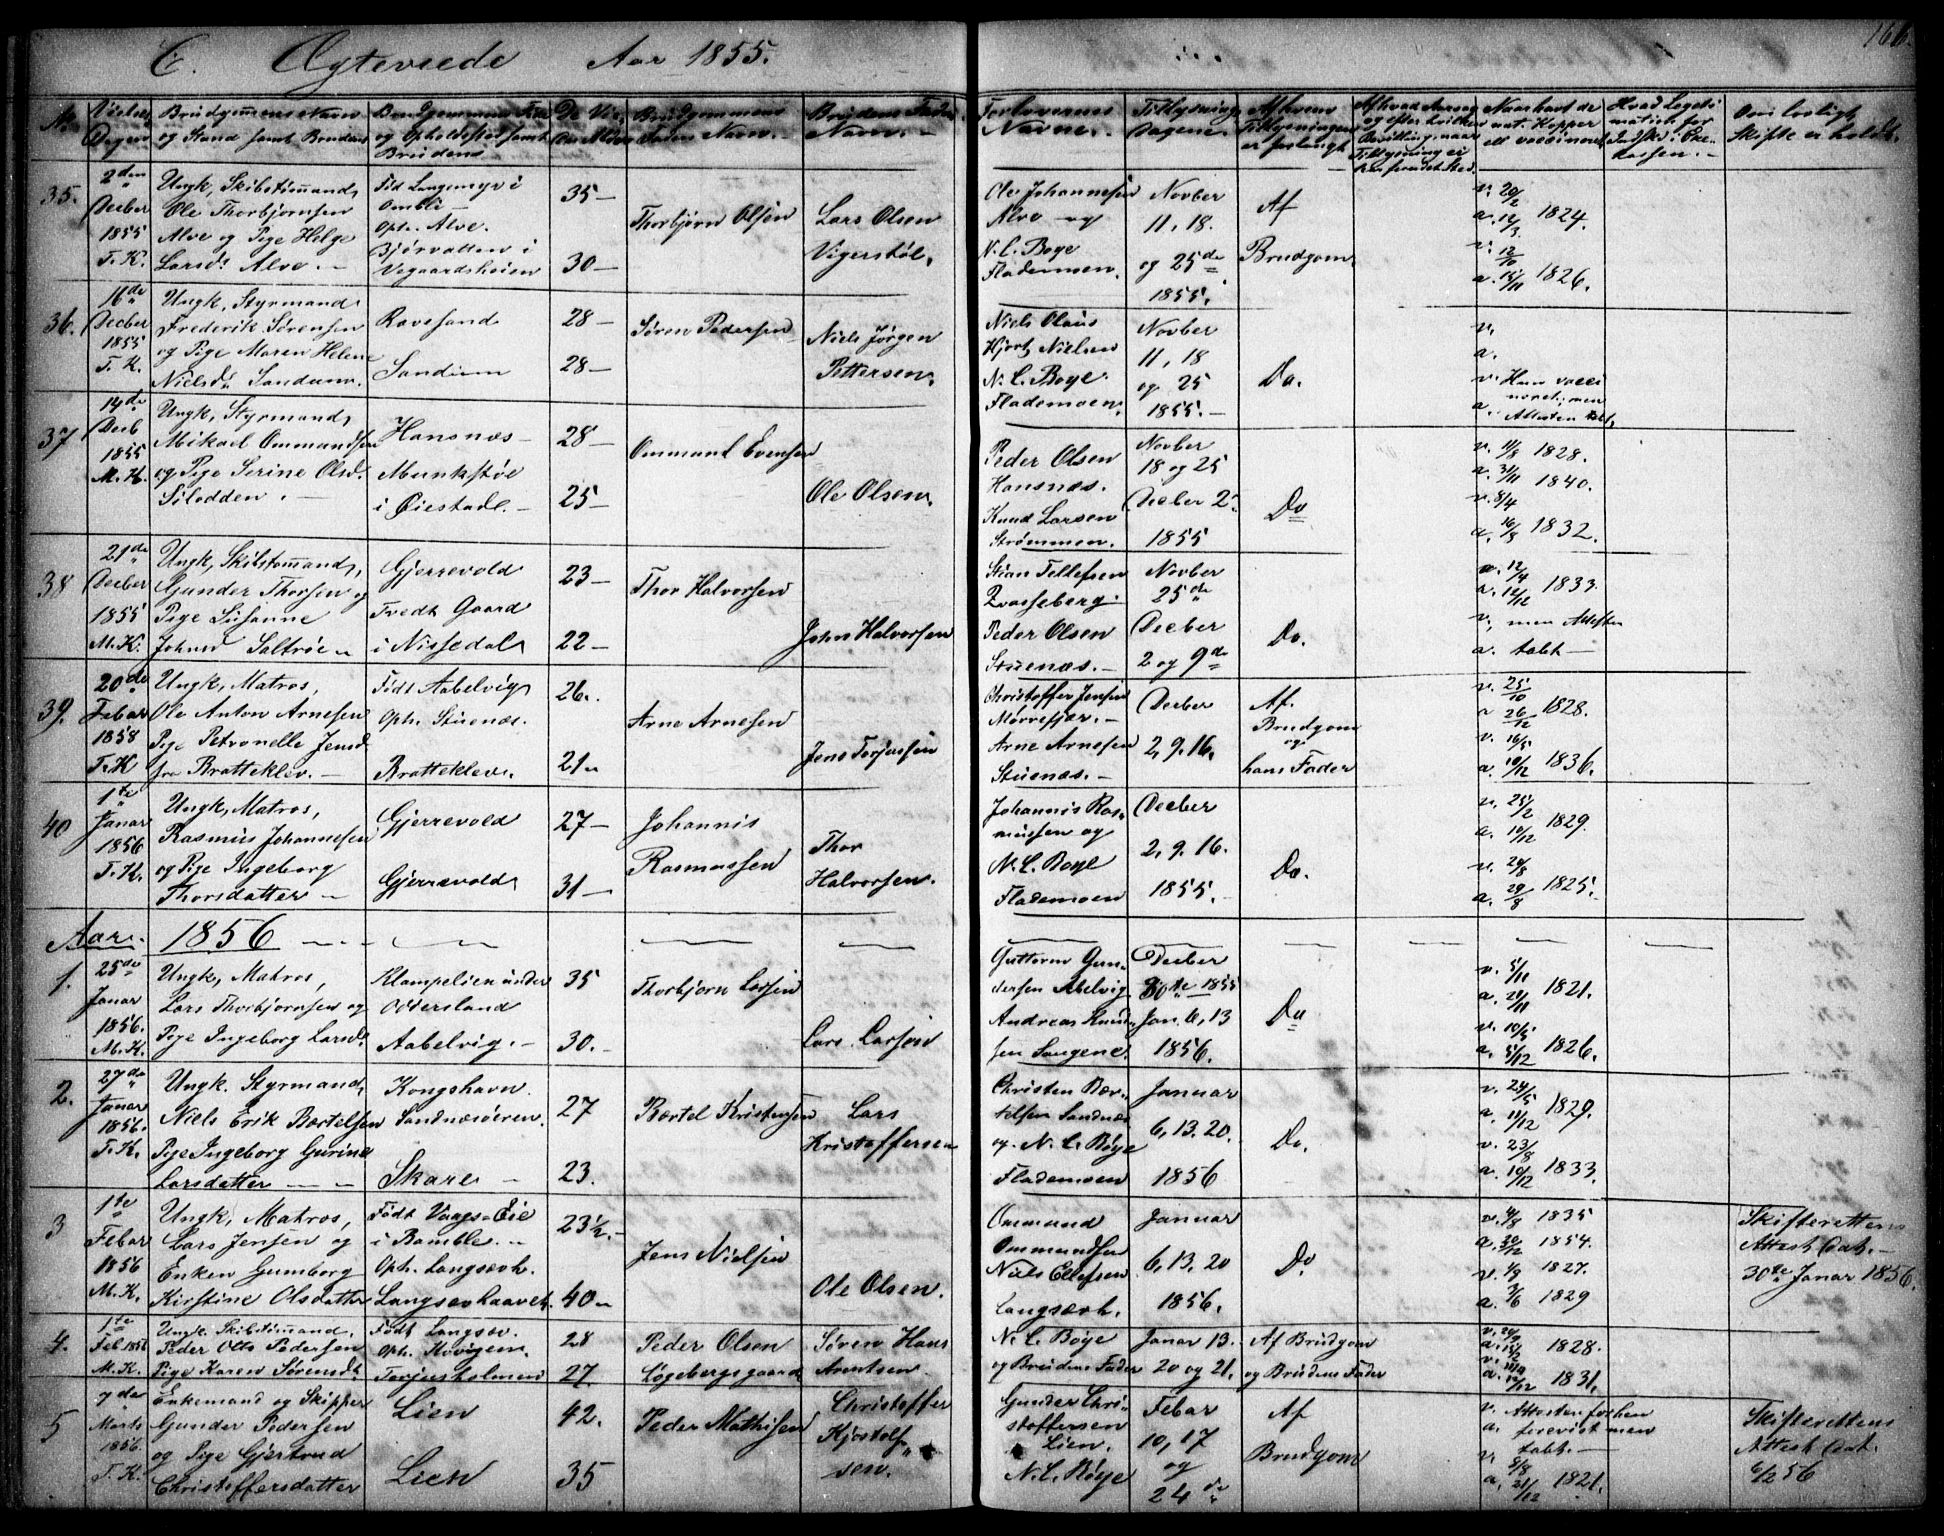 C. Ægteviede Aar 1855.
166.
No.
Vielses Dagen
Brudgommens Navn og Stand samt Brudens
Brudgommens Fødested og Oph: Afsted samt Brudens
Brudgommens Faders Navn.
Brudens Faders Navn. –
Forlovernes Navne. –
Tillysnings Dagene.
Af hvem Tillysningen er forlangt
Om lovligt Skifte er holdt.
35.
2den Decber 1855 T. K.
Ungk, Skibstømmand,
Ole Thorbjørnsen
Alve og Pige Helge
Larsd: Alve. –
Fød Langemyr i
Omblie –
Oph. Alve.
Bjørvatten i
Vegaardsheien
35 –
30 –
Thorbjørn Olsen
Lars Olsen
Vigerstøl.
Ole Johannesen
Alve – og
N. C. Boye
Flademoen.
Novber
11, 18.
og 25de
1855.
Af
Brudgom.
v. 20/2
a. 14/3 1824.
v. 12/10
a. 15/11 1826.
36.
16de Decber 1855 T. K.
Ungk, Styrmand
Frederik Sørensen
og Pige Maren Helene
Nielsd: Sandum.
Ravesand
Sandum
28 –
28 –
Søren Pedersen
Niels Jørgen
Pettersen.
Niels Olaus
Hjort, Nielsen
N. C. Boye.
Flademoen.
Novber
11, 18
og 25
1855. –
Do.
v.
a.
v. Hun vacci
neret; men
a. Attesten tabt.
37
14de Decb 1855 M. K.
Ungk, Styrmand,
Mikael Ommundsen
og Pige Serine Olsd.
Silodden. –
Hansnæs –
Munkstøe
i Øiestad. –
28 –
25 –
Ommund Evensen
Ole Olsen.
Peder Olsen
Hansnæs.
Knud Larsen
Strømmen.
Novber
18 og 25
Decber 2.
1855
Do
v. 11/8 1828.
a. 31/11 1840.
v. 8/4
a. 16/8 1832.
38
21de Decber 1855 M. K.
Ungk, Skibstømand,
Gunder Thorsen og
Pige Susanne
Johnsd Saltrøe „
Gjerrevold
Tvedt Gaard
i Nissedal
23 –
22 –
Thor Halvorsen
John Halvorsen
Stian Tellefsen
Qvasseberg.
Peder Olsen
Stuenæs. –
Novber
25de
Decber
2 og 9de
Do.
v. 12/4
a. 14/12 1833.
v, men Attesten
a. tabt –
39.
20de Febar 1858 T. K
Ungk, Matros,
Ole Anton Arnesen
Pige Petronelle Jensd
fra Bratteklev. –
Født Aabelvig
Oph. Stuenæs.
Bratteklev.
26.
21 „
Arne Arnesen
Jens Torjussen
Christoffer Jensen
Mørrefjær. –
Arne Arnesen
Stuenæs. –
Decber
2, 9. 16.
Af.
Brudgom
og
hans Fader
v. 25/10
a 26/12 1828.
v. 16/5
a. 10/12 1836.
40
1te Janar 1856 T. K.
Ungk, Matros,
Rasmus Johannesen
og Pige Ingeborg
Thorsdatter –
Gjerrevold
Gjerrevold
27 –
31 –
Johannis
Rasmussen
Thor
Halvorsen.
Johannis Ras-
mussen og
N. C. Boye
Flademoen
Decber
2, 9. 16.
1855.
Do.
v. 25/2
a. 10/12 1829.
v. 20/8
a. 29/8 1825.
Aar. 1856
1.
25de Janar 1856. M. K.
Ungk, Matros,
Lars Thorbjørnsen og
Pige Ingeborg Larsd.
Klampelien under
Oddersland
Aabelvig. –
35
30. –
Thorbjørn Larsen
Lars Larsen
Guttorm Gun-
dersen Abelvig
Andreas Knud-
sen Songene.
Decber
30te 1855
Jan. 6, 13
1856.
Do
v. 5/11
a. 20/11 1821.
v. 10/5
a. 5/12 1826.
2.
27de Janar 1856. T. K.
Ungk. Styrmand,
Niels Erik Bertelsen
Pige Ingeborg Gurine
Larsdatter – –
Kongshavn.
Sandnæsøeren.
Skare –
27
23.
Bertel Kristensen
Lars
Kristoffersen
Christen Ber-
telsen Sandnæs
og. N. C. Bøye
Flademoen
Januar
6, 13. 20.
1856
Do.
v. 24/5
a. 11/12 1829.
v. 23/8
a. 10/12 1833.
3
1te Febar 1856 M. K.
Ungk, Matros,
Lars Jensen og
Enken Gumborg
Kirstine Olsdatter
Født Vaags-Eie
i Bamble. –
Oph. Langsævh.
Langsævhaavet.
23½. –
40 „
Jens Nielsen
Ole Olsen.
Ommund
Ommundsen
Niels Ellefsen
Langsævh.
Januar
6, 13, 20
1856.
Do
v. 4/8 1835
a. 20/12 1854.
v. 1/9 1827.
a. 3/6 1829
Skifterettens
Attest Dat. –
30te Janar 1856.
4.
1te Feb 1856 M. K.
Ungk. Skibstømand,
Peder Otto Pedersen
Pige Karen Sørensdt
Født Langsæv.
Oph. Kuvigen.
Torjusholmen
28
27
Peder Olsen
Løgebergsgaard
Søren Hans
Arntsen.
N. C. Bøye
og Brudens Fader
Janar 13.
20 og 21.
Af Brudgom
og Brudens Fader
1828.
1831.
5
7de Marts 1856. T. K.
Enkemand og Skipper
Gunder Pedersen
og Pige Gjertrud
Christoffersdatter
Lien
Lien
42.
35
Peder Mathisen
Christoffer
Kjøstolf-
sen.
Gunder Chri-
stoffersen
Lien.
N. C. Bøye
Febar
10, 17
og
24de
Af
Brudgom
v. Attesten forhen
a. forevist men
tabt. –
v. 8/8
a. 21/12 1821.
Skifterettens
Attest Dat.
6/2 56